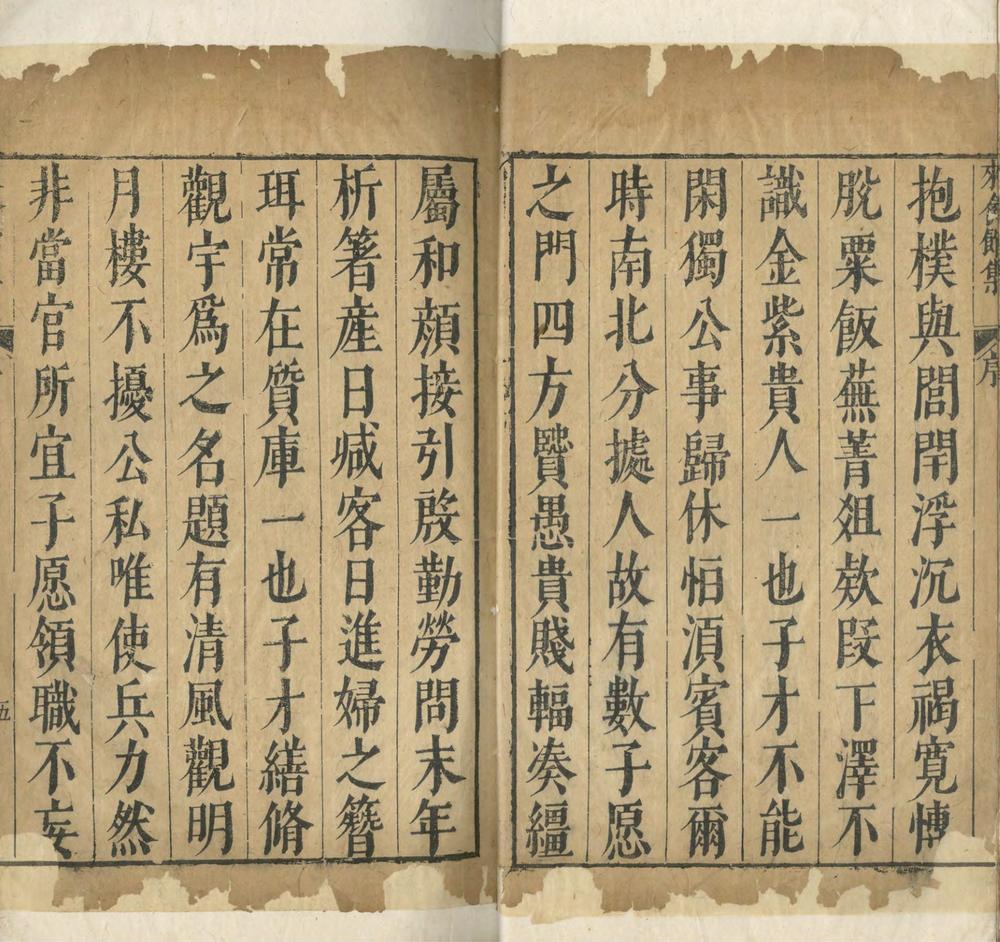 來禽館集 序
抱樸與閭閈浮沉衣褐寛慱
脫粟飯蕪菁爼欸段下澤不
識金紫貴人一也子才不能
閑獨公事歸休怕湏賓客爾
時南北分據人故有數子愿
之門四方賢愚貴賤輻凑繦
屬和顔接引殷勤勞問末年
析箸産日减客日進婦之簪
珥常在質庫一也子才繕脩
觀宇爲之名題有清風觀明
月樓不擾公私唯使兵力然
非當官所宜子愿領職不妄
五